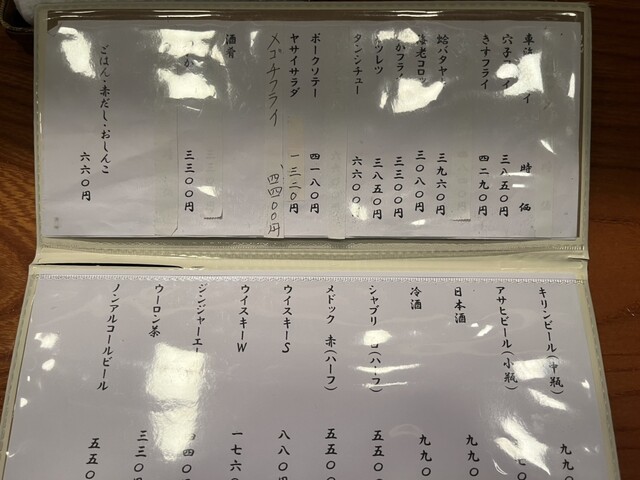 時価
穴子 三八五〇円
きすフライ 四二九〇円
蛤バタヤー 三九六〇円
海老コロッ 三〇八〇円
かフライ 三三〇〇円
ツレツ 三八五〇円
タンシチュー 六六〇
ポークソテー 四一八〇円
ヤサイサラダ 一三二〇円
メゴチフライ 四四〇〇円
酒肴
三三〇〇円
ごはん・赤だし・おしんこ 六六〇円
キリンビール(中瓶) 九九〇
アサヒビール(小瓶) 七〇
日本酒 九九〇
冷酒 九九〇
シャブリ (ハーフ) 五五〇
メドック 赤(ハーフ) 五五〇
ウイスキーS 八八〇円
ウイスキーW 一七六〇
ジンジャーエー 四〇
ウーロン茶 三三〇円
ノンアルコールビール 五五〇